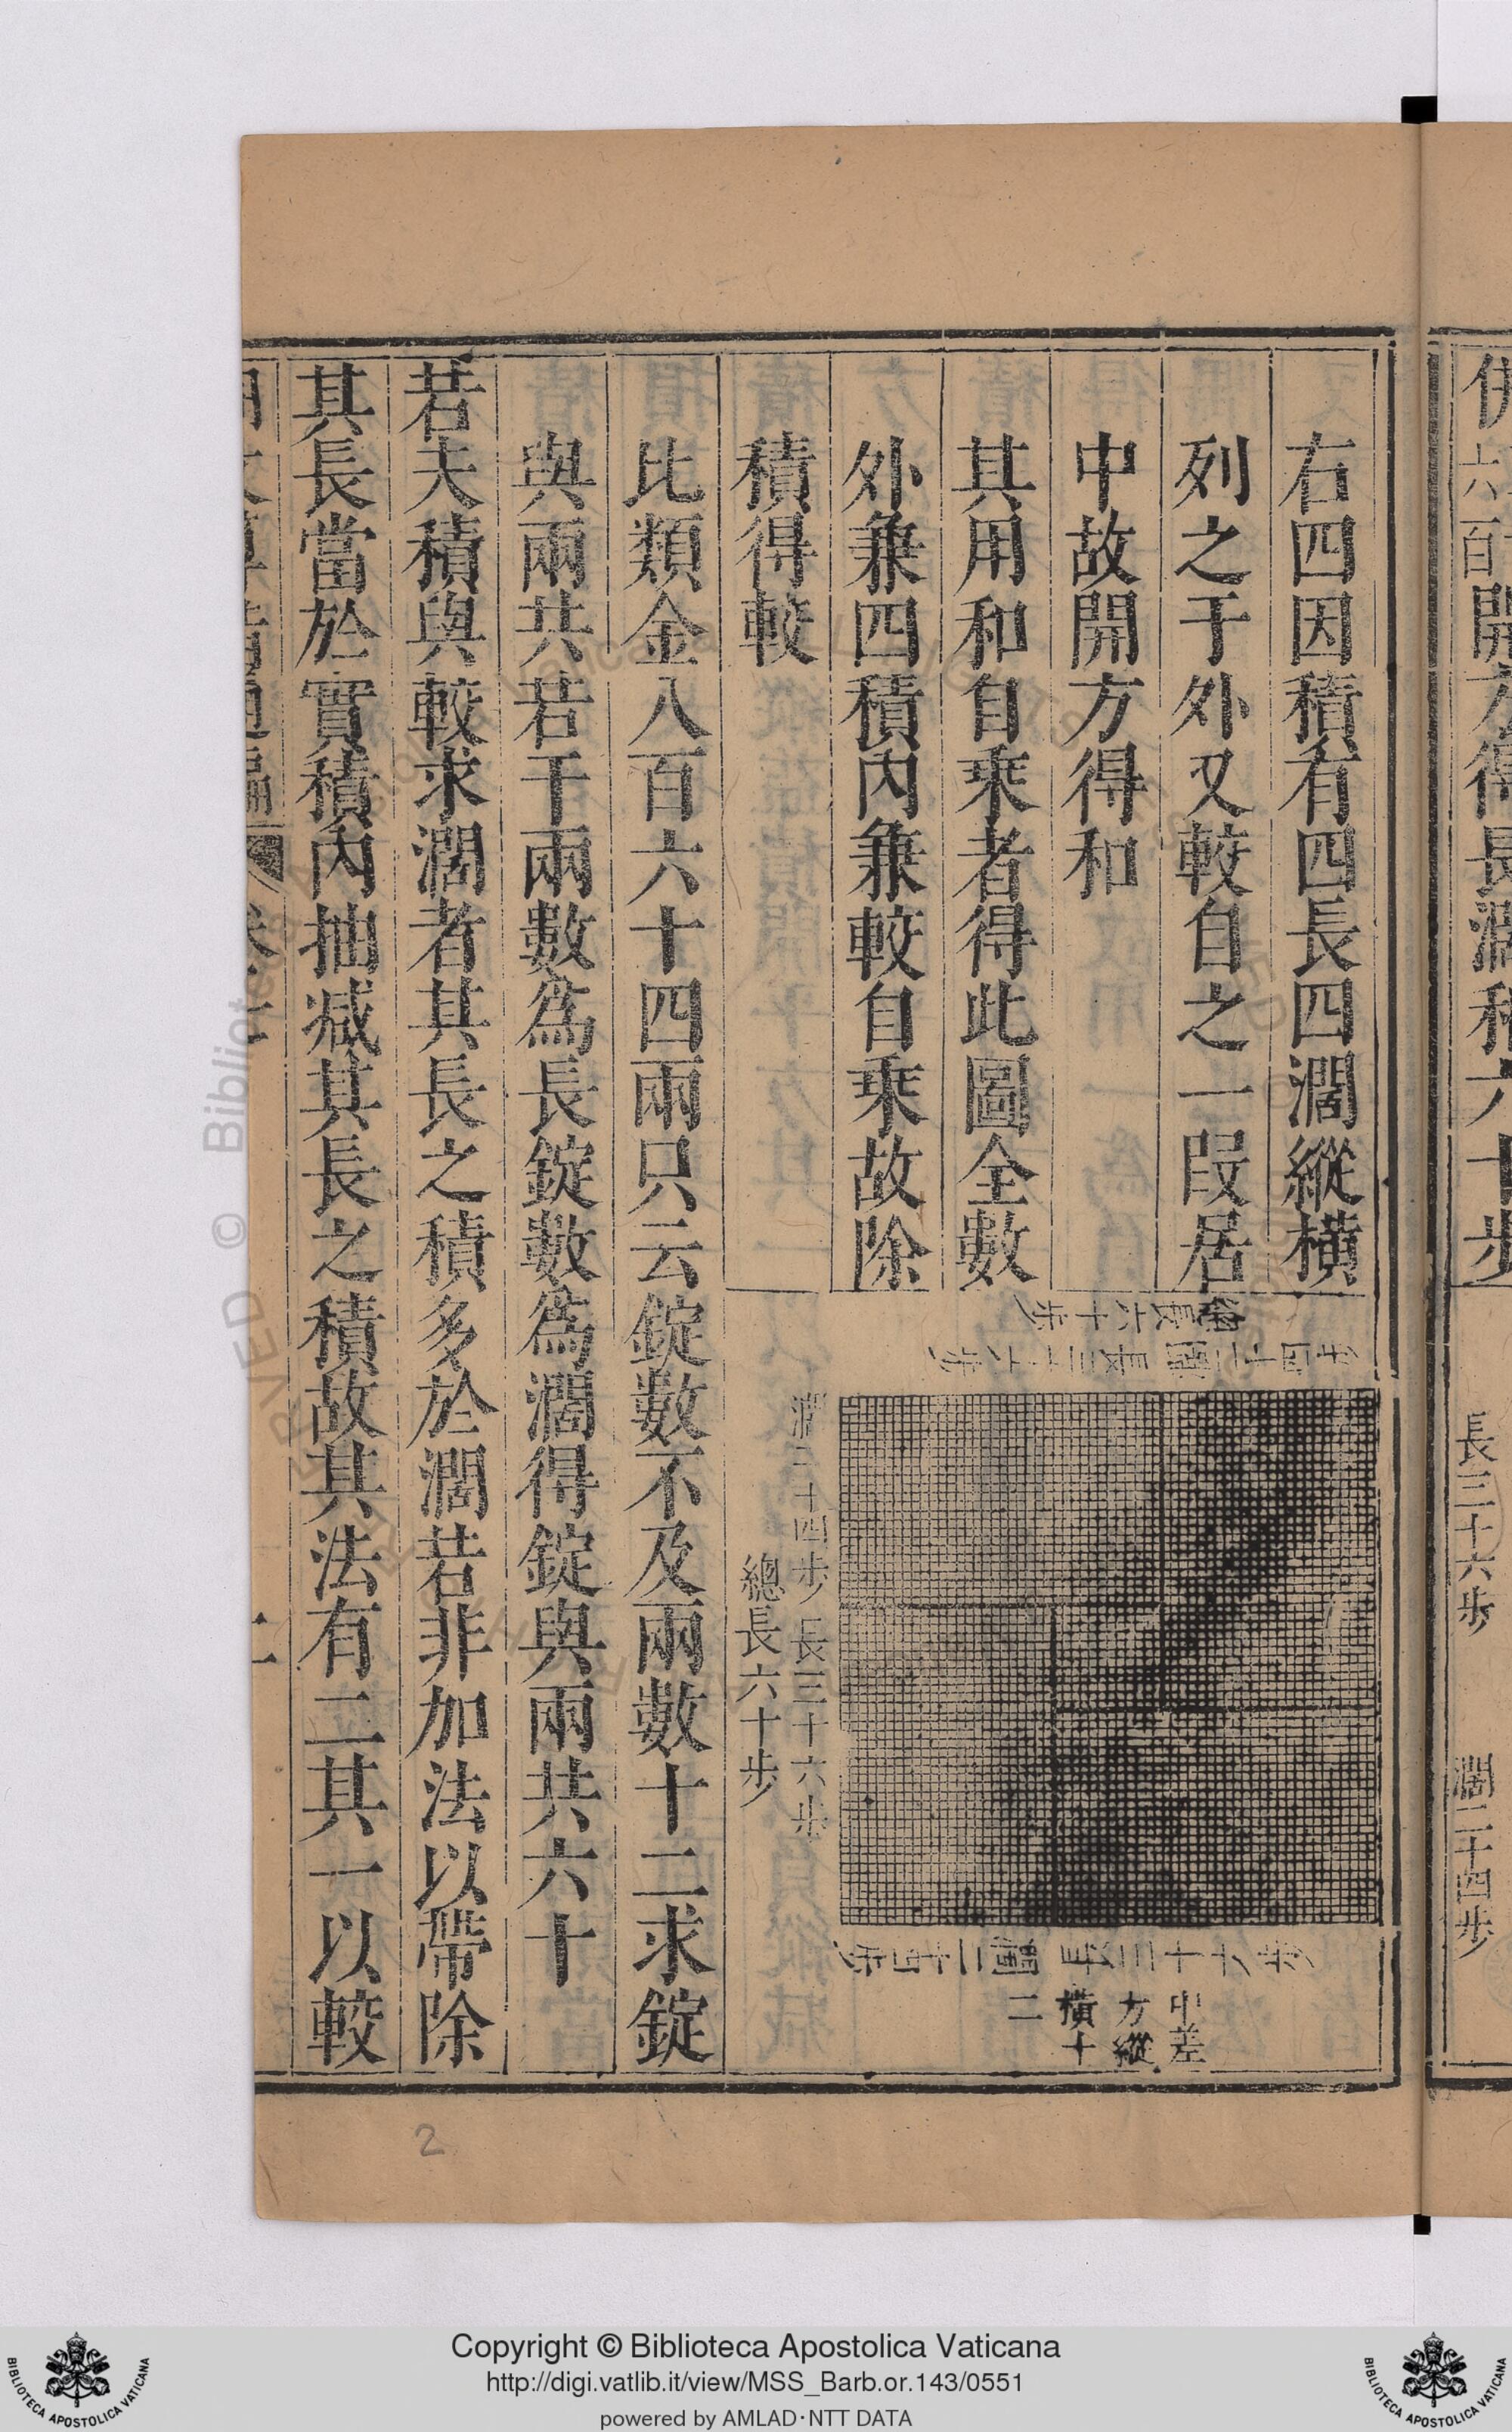 長三十六步 濶二十四步
右四因積有四長四濶縱橫
列之于外又較自之一段居
中故開方得和
其用和自乘者得此圖全數
外兼四積內兼較自乘故除
積得較
縱長六十步
濶二十四步 長三十六步
總長六十步
中差
方縱
橫十
二
比類金八百六十四兩只云錠數不及兩數十二求錠
與兩共若干兩數為長錠數為濶得錠與兩共六十
若夫積與較求濶者其長之積多於濶若非加法以帶除
其長當於實積內抽减其長之積故其法有二其一以較
二
2
© Biblioteca
Copyright © Biblioteca Apostolica Vaticana
http://digi.vatlib.it/view/MSS_Barb.or.143/0551
powered by AMLAD·NTT DATA
BIBLIOTECA APOSTOLICA VATICANA
BIBLIOTECA APOSTOLICA VATICANA